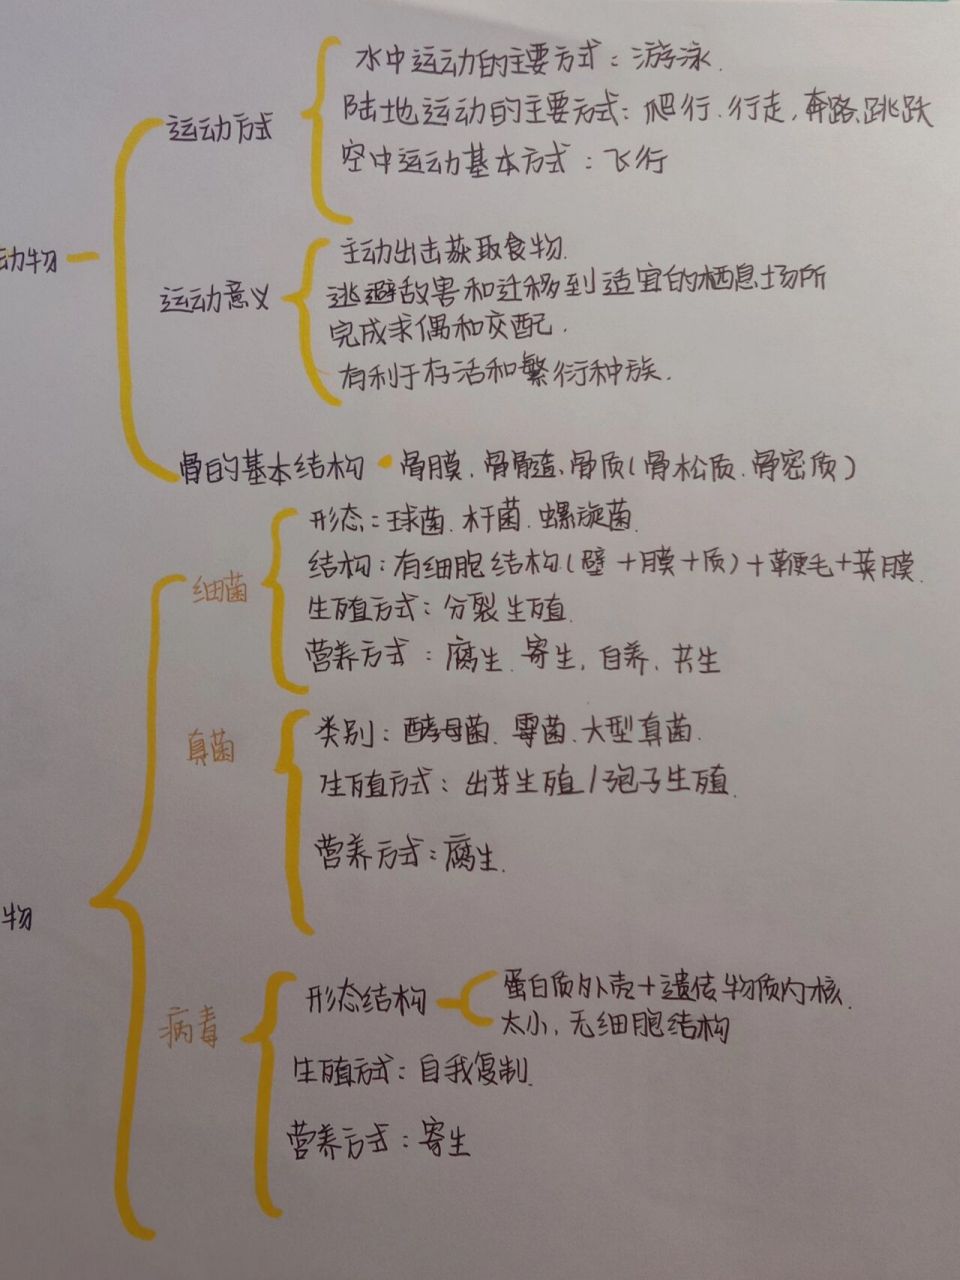 水中运动的主要方式：游泳.
陆地运动的主要方式：爬行.行走,奔跑.跳跃
运动方式
空中运动基本方式：飞行
动物
主动出击获取食物.
逃避敌害和迁移到适宜的栖息场所
运动意义
完成求偶和交配.
有利于存活和繁衍种族.
骨的基本结构·骨膜.骨骨髓.骨质(骨松质.骨密质)
形态：球菌.杆菌.螺旋菌.
结构：有细胞结构(壁+膜+质)+鞭毛+荚膜.
细菌
生殖方式：分裂生殖.
营养方式：腐生.寄生,自养.共生
类别：酵母菌.霉菌.大型真菌.
真菌
生殖方式：出芽生殖/孢子生殖.
营养方式：腐生.
物
形态结构
蛋白质外壳+遗传物质内核.
太小,无细胞结构
病毒
生殖方式：自我复制.
营养方式：寄生